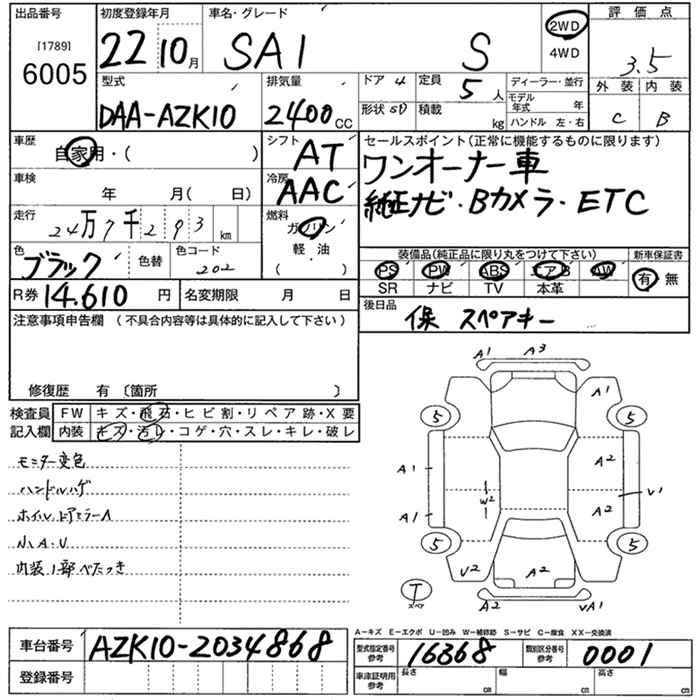 出品番号 初度登録年月 車名・グレード 評価点
[1789]
6005
22 10月 SAI S
2WD
4WD
3.5
型式 排気量 ドア 4 定員 5人 ディーラー・並行 外装 内装
DAA-AZK10 2400 CC 形状 SD 積載 kg
モデル年式 年
ハンドル 左・右
C B
車歴 自家用・( ) シフト AT
セールスポイント(正常に機能するものに限ります)
ワンオーナー車
純正ナビ・Bカメラ・ETC
車検 年 月( 日) 冷房 AAC
走行 24万7千293 km 燃料 ガソリン
軽・油
( )
色 ブラック 色替 色コード 202
装備品(純正品に限り丸をつけて下さい) 新車保証書
PS PW ABS エアB AW 有・無
SR ナビ TV 本革
R券 14.610 円 名変期限 月 日
後日品 保 スペアキー
注意事項申告欄 (不具合内容等は具体的に記入して下さい)
修復歴 有 〔箇所 〕
検査員 FW キズ・飛石・ヒビ割・リペア跡・X要
記入欄 内装 キズ・汚レ・コゲ・穴・スレ・キレ・破レ
モニター変色
ハンドルハゲ
ホイル ドアミラーA
小A・U
内装1部べたつき
A1 A3
A1
5 5
A1 A2
W2 U1
A1 A2
5 5
U2 A2
T
スペア
A2 UA1
A−キズ E−エクボ U−凹み W−補修跡 S−サビ C−腐食 XX−交換済
車台番号 AZK10-2034868
型式指定番号 参考 16368 類別区分番号 参考 0001
登録番号
車庫証明用 参考 長さ cm 幅 cm 高さ cm